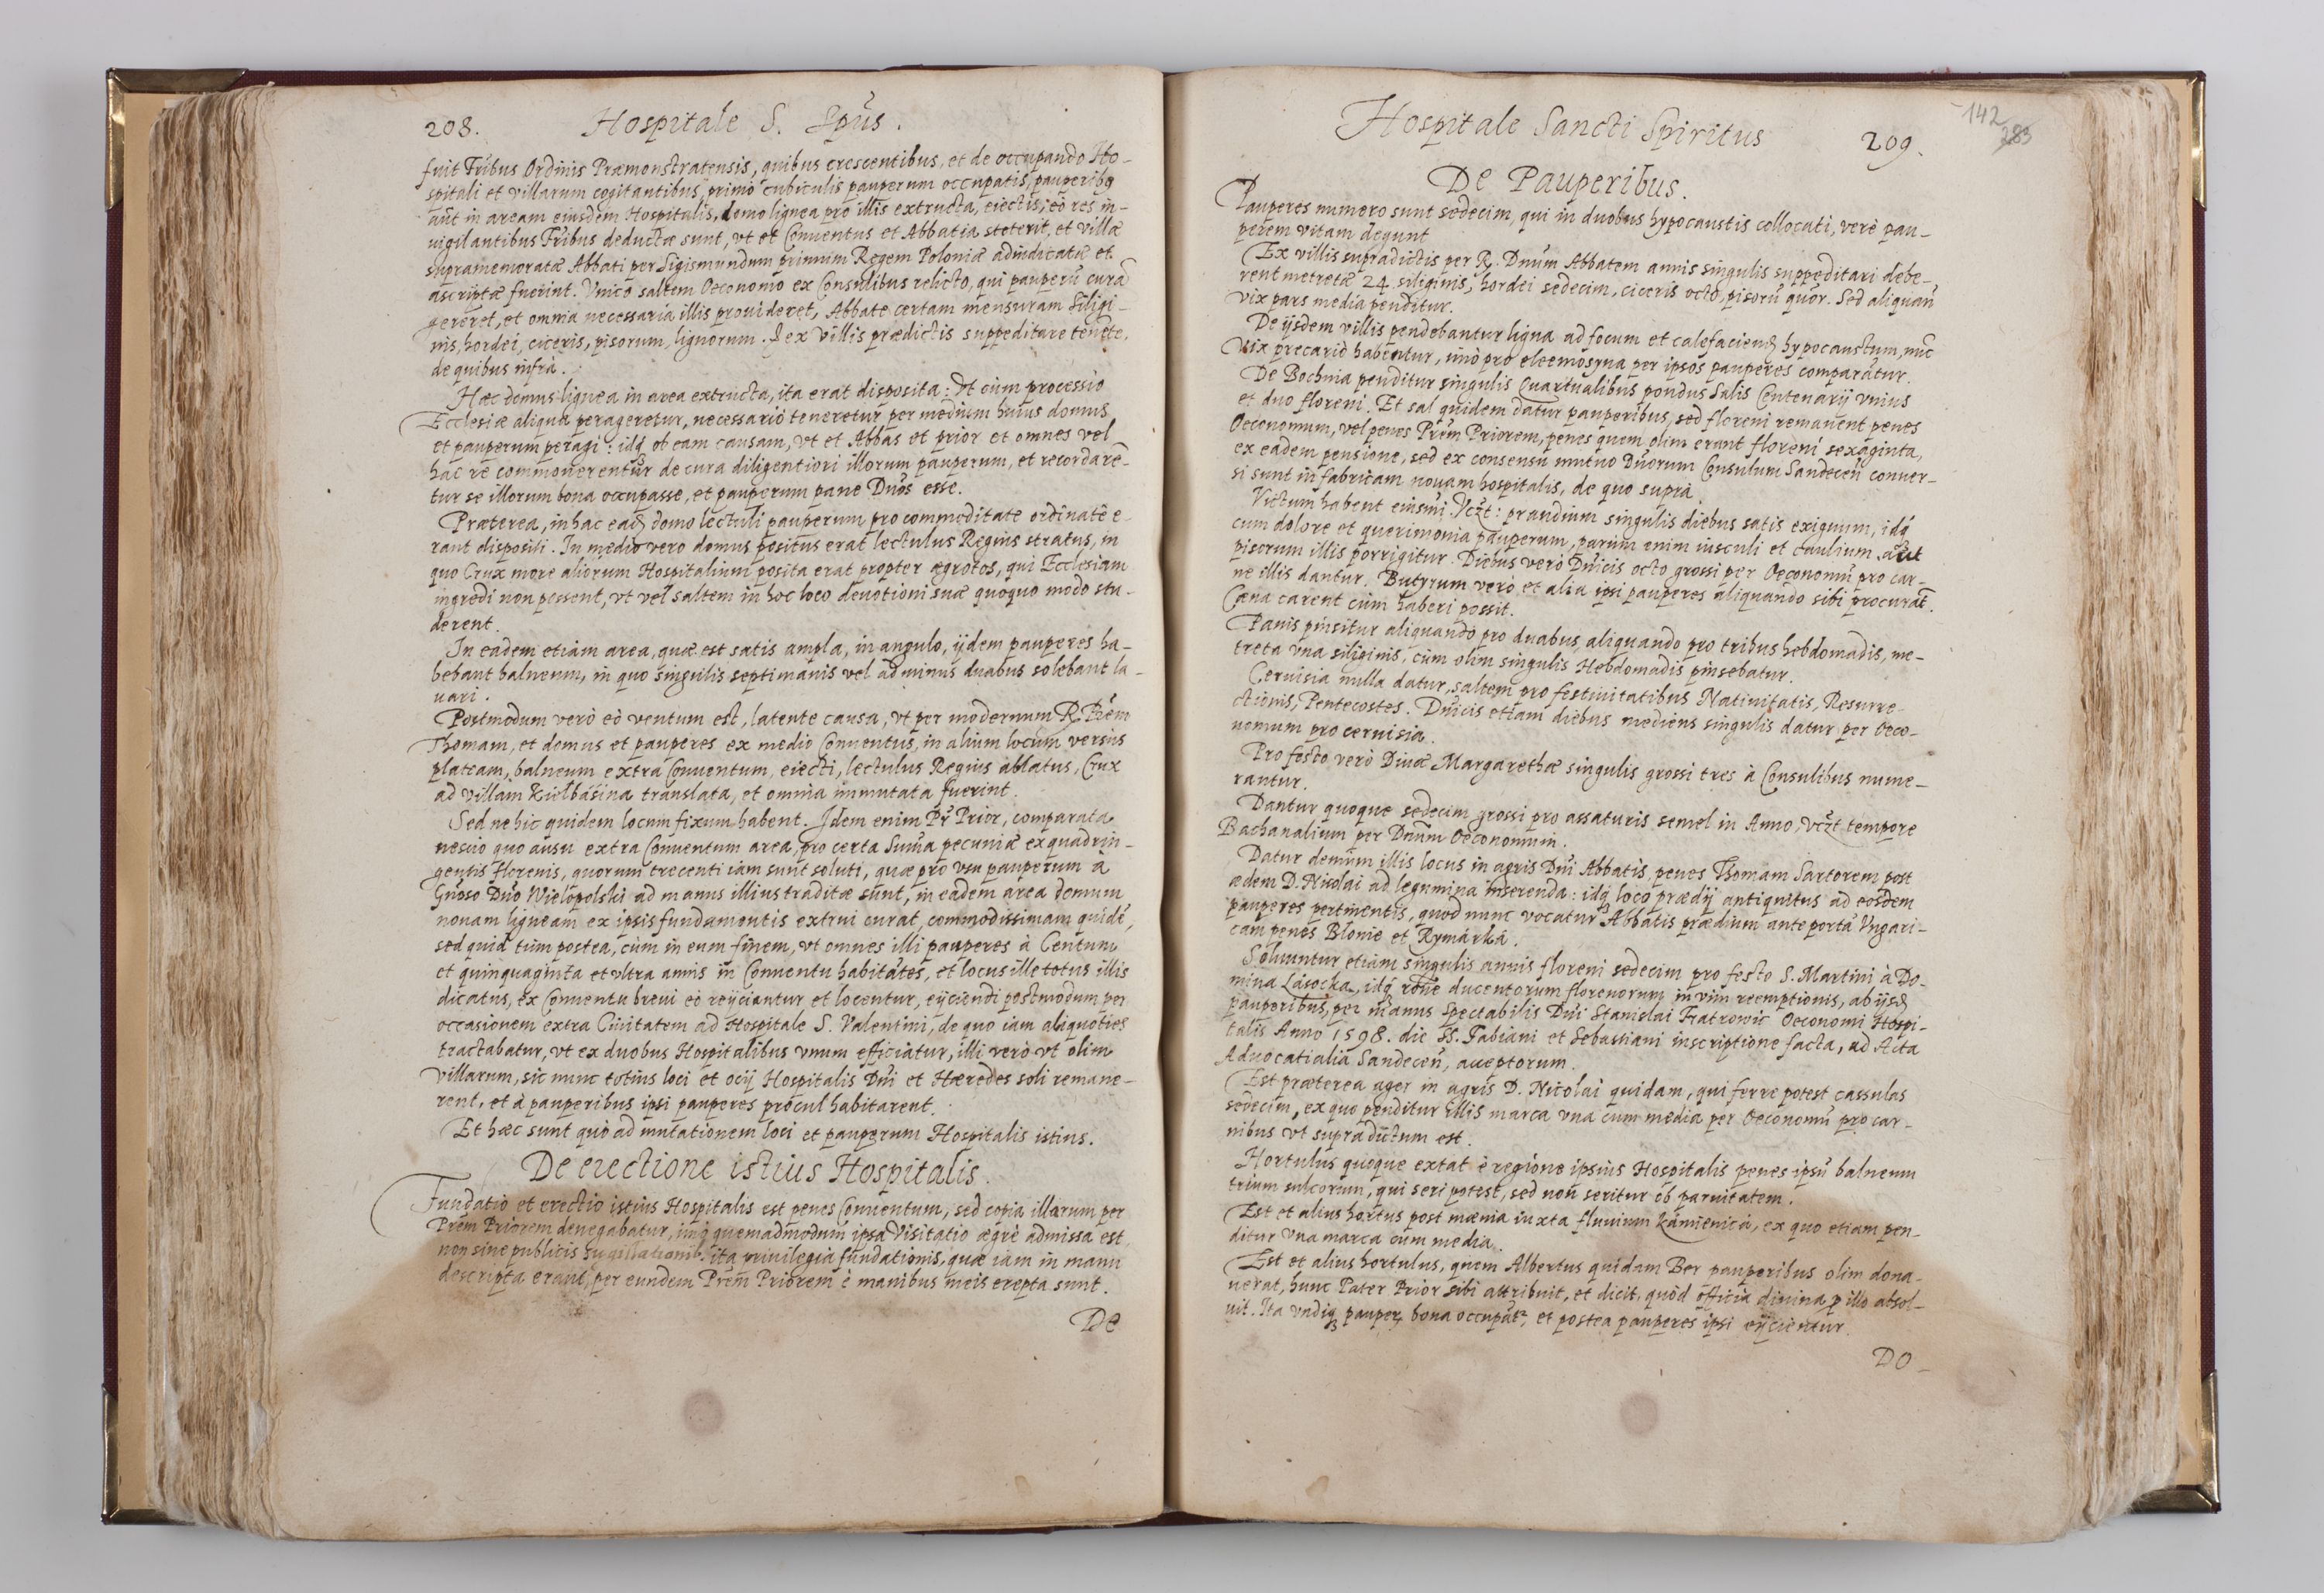 208. Hospitale S. Spūs.
fuit Fr̄ibus Ordinis Præmonstratensis, quibus crescentibus, et de occupando Ho-
spitali et villarum cogitantibus, primò cubiculis pauperum occupatis, pauperibꝫ
aūt in aream eiusdem Hospitalis, domo lignea pro illis extructa, eiectis, eò res in-
uigilantibus Fr̄ibus deductæ sunt, vt et Conuentus et Abbatia steterit, et villæ
supramemoratæ Abbati per Sigismundum primum Regem Poloniæ adiudicatæ et
ascriptæ fuerint. Vnico saltem Oeconomo ex Consulibus relicto, qui pauperū curā
gereret, et omnia necessaria illis prouideret, Abbate certam mensuram siligi-
nis, hordei, ciceris, pisorum, lignorum. ex Villis prædictis suppeditare tenete,
de quibus infrà.
Hæc domus lignea in area extructa, ita erat disposita: Vt cùm processio
Ecclesiæ aliqua perageretur, necessariò teneretur per medium huius domus
et pauperum peragi: idqꝫ ob eam causam, vt et Abbas et prior et omnes vel
hac re commonerentur de cura diligentiori illorum pauperum, et recordare-
tur se illorum bona occupasse, et pauperum pane Dn̄os esse.
Præterea, in hac eadꝫ domo lectuli pauperum pro commoditate ordinatè e-
rant dispositi. In medio vero domus positus erat lectulus Regius stratus, in
quo Crux more aliorum Hospitalium posita erat propter ægrotos, qui Ecclesiam
ingredi non possent, vt vel saltem in hoc loco deuotioni suæ quoquo modo stu-
derent.
In eadem etiam area, quæ est satis ampla, in angulo, ijdem pauperes ha-
bebant balneum, in quo singulis septimanis vel ad minus duabus solebant la-
uari.
Postmodum verò eò ventum est, latente causa, vt per modernum R. Prēm
Thomam, et domus et pauperes ex medio Conuentus, in alium locum versus
plateam, balneum extra Conuentum, eiecti, lectulus Regius ablatus, Crux
ad villam Kiełbásina translata, et omnia immutata fuerint.
Sed ne hic quidem locum fixum habent. Idem enim Pr̄ Prior, comparata
nescio quo ausu extra Conuentum area, pro certa sum̄a pecuniæ ex quadrin-
gentis florenis, quorum trecenti iam sunt soluti, quæ pro vsu pauperum à
Gn̄oso Dn̄o Wielopolski ad manus illius traditæ sunt, in eadem area domum
nouam ligneam ex ipsis fundamentis extrui curat, commodissimam quidē,
sed quid tùm postea, cùm in eum finem, vt omnes illi pauperes à Centum
et quinquaginta et vltra annis in Conuentu habitātes, et locus ille totus illis
dicatus, ex Conuentu breui eò reijciantur et locentur, eijciendi postmodum per
occasionem extra Ciuitatem ad Hospitale S. Valentini, de quo iam aliquoties
tractabatur, vt ex duobus Hospitalibus vnum efficiatur, illi verò vt olim
villarum, sic nunc totius loci et ocij Hospitalis Dn̄i et Hæredes soli remane-
rent, et à pauperibus ipsi pauperes procul habitarent.
Et hæc sunt quò ad mutationem loci et pauperum Hospitalis istius.
De erectione istius Hospitalis.
Fundatio et erectio istius Hospitalis est penes Conuentum, sed copia illarum per
Prēm Priorem denegabatur, imò quemadmodum ipsa Visitatio ægrè admissa est
non sine publicis sugillationib. ita priuilegia fundationis, quæ iam in manu
descripta erant, per eundem Prēm Priorem è manibus meis erepta sunt.
De
Hospitale Sancti Spiritus 209.
142
283
De Pauperibus.
Pauperes numero sunt sedecim, qui in duobus hypocaustis collocati, verè pau-
perem vitam degunt
Ex villis supradictis per R. Dn̄um Abbatem annis singulis suppeditari debe-
rent metretæ 24 siliginis, hordei sedecim, ciceris octo, pisorū quor. Sed aliquan̄
vix pars media penditur.
De ijsdem villis pendebantur ligna ad focum et calefaciendꝫ hypocaustum, nūc
vix precariò habentur, imò pro eleemosyna per ipsos pauperes comparātur.
De Bochnia penditur singulis Quartualibus pondus Salis Centenarij vnius
et duo floreni. Et sal quidem datur pauperibus, sed floreni remanent penes
Oeconomum, vel penes Prēm Priorem, penes quem olim erant floreni sexaginta,
ex eadem pensione, sed ex consensu mutuo Dn̄orum Consulum Sandecen̄ conuer-
si sunt in fabricam nouam hospitalis, de quo suprà.
Victum habent eiusm̄i Vcꝫt: prandium singulis diebus satis exiguum, idqꝫ
cum dolore et querimonia pauperum, parùm enim iusculi et caulium aut
pisorum illis porrigitur. Diebus verò Dn̄icis octo grossi per Oeconomū pro car-
ne illis dantur. Butyrum verò et alia ipsi pauperes aliquando sibi procurāt.
Cæna carent cùm haberi possit.
Panis pinsitur aliquando pro duabus, aliquando pro tribus hebdomadis, me-
treta vna siliginis, cùm olim singulis Hebdomadis pinsebatur.
Ceruisia nulla datur, saltem pro festiuitatibus Natiuitatis, Resurre-
ctionis, Pentecostes. Dn̄icis etiam diebus mediens singulis datur per Oeco-
nomum pro ceruisia.
Pro festo verò Diuæ Margarethæ singulis grossi tres à Consulibus nume-
rantur.
Dantur quoque sedecim grossi pro assaturis semel in Anno, vcꝫt tempore
Bachanalium per Dn̄um Oeconomum.
Datur demùm illis locus in agris Dn̄i Abbatis, penes Thomam Sartorem post
ædem D. Nicolai ad legumina inserenda: idqꝫ loco prædij antiquitus ad eosdem
pauperes pertinentis, quod nunc vocatur Abbatis prædium ante portā Vngari-
cam penes Blonie et Rymárká.
Soluuntur etiam singulis annis floreni sedecim pro festo S. Martini à Do-
mina Lásocka, idqꝫ rōne ducentorum florenorum in vim reemptionis, ab ijsdꝫ
pauperibus, per manus Spectabilis Dn̄i Stanislai Fratrowic Oeconomi Hospi-
talis Anno 1598. die SS. Fabiani et Sebastiani inscriptione facta, ad Acta
Aduocatialia Sandecen̄, acceptorum.
Est præterea ager in agris D. Nicolai quidam, qui ferre potest cassulas
sedecim, ex quo penditur illis marca vna cum media per Oeconomū pro car-
nibus vt supradictum est.
Hortulus quoque extat è regione ipsius Hospitalis penes ipsū balneum
trium sulcorum, qui seri potest, sed non seritur ob paruitatem.
Est et alius hortus post mænia iuxta fluuium Kámienicá, ex quo etiam pen-
ditur vna marca cum media.
Est et alius hortulus, quem Albertus quidam Ber pauperibus olim dona-
uerat, hunc Pater Prior sibi attribuit, et dicit, quòd officia diuina p illo absol-
uit. Ita vndiqꝫ pauperꝫ bona occupātr, et postea pauperes ipsi eijcientur.
DO-